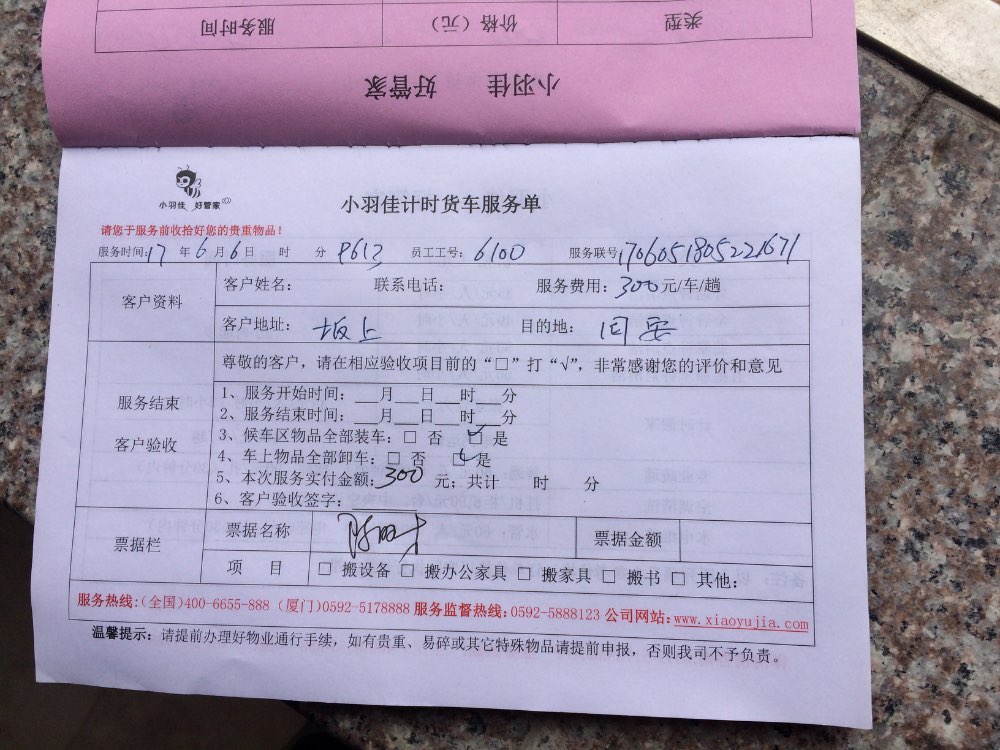 类型 价格（元） 服务时间
小羽佳 好管家
小羽佳 好管家
小羽佳计时货车服务单
请您于服务前收拾好您的贵重物品！
服务时间:17 年 6 月 6 日 时 分 员工工号：6100 服务联号
客户资料
客户姓名： 联系电话： 服务费用：300元/车/趟
客户地址：坂上 目的地：同安
服务结束
客户验收
尊敬的客户，请在相应验收项目前的“□”打“√”，非常感谢您的评价和意见
1、服务开始时间：___月___日___时___分
2、服务结束时间：___月___日___时___分
3、候车区物品全部装车：□ 否 ☑ 是
4、车上物品全部卸车：□ 否 ☑是
5、本次服务实付金额：300 元；共计 时 分
6、客户验收签字：
票据栏
票据名称 票据金额
项 目 □ 搬设备 □ 搬办公家具 □ 搬家具 □ 搬书 □ 其他：
服务热线：(全国)400-6655-888 (厦门)0592-5178888 服务监督热线：0592-5888123 公司网站：www.xiaoyujia.com
温馨提示：请提前办理好物业通行手续，如有贵重、易碎或其它特殊物品请提前申报，否则我司不予负责。